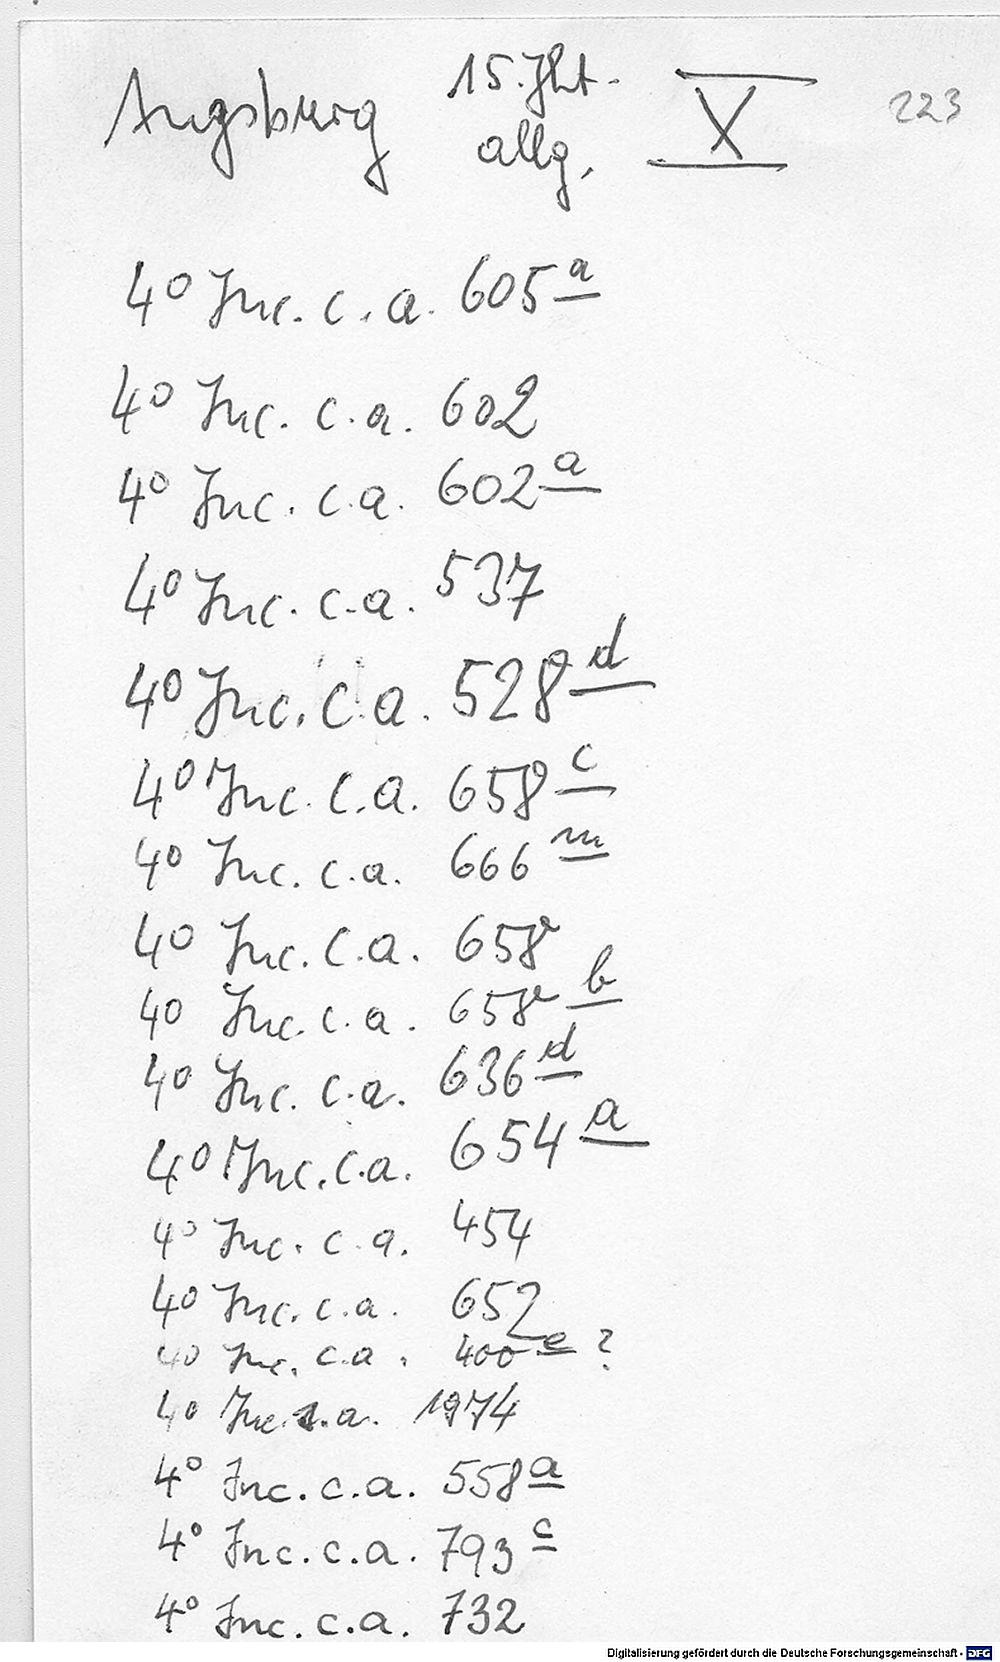 Augsburg 15. Jht. allg. X 223
4° Inc. c. a. 605 a
4° Inc. c. a. 602
4° Inc. c. a. 602 a
4° Inc. c. a. 537
4° Inc. c. a. 528 d
4° Inc. c. a. 658 c
4° Inc. c. a. 666 m
4° Inc. c. a. 658
4° Inc. c. a. 658 b
4° Inc. c. a. 636 d
4° Inc. c. a. 654 a
4° Inc. c. a. 454
4° Inc. c. a. 652
4° Inc. c. a. 400 e ?
4° Inc. s. a. 1974
4° Inc. c. a. 558 a
4° Inc. c. a. 793 c
4° Inc. c. a. 732
Digitalisierung gefördert durch die Deutsche Forschungsgemeinschaft - DFG